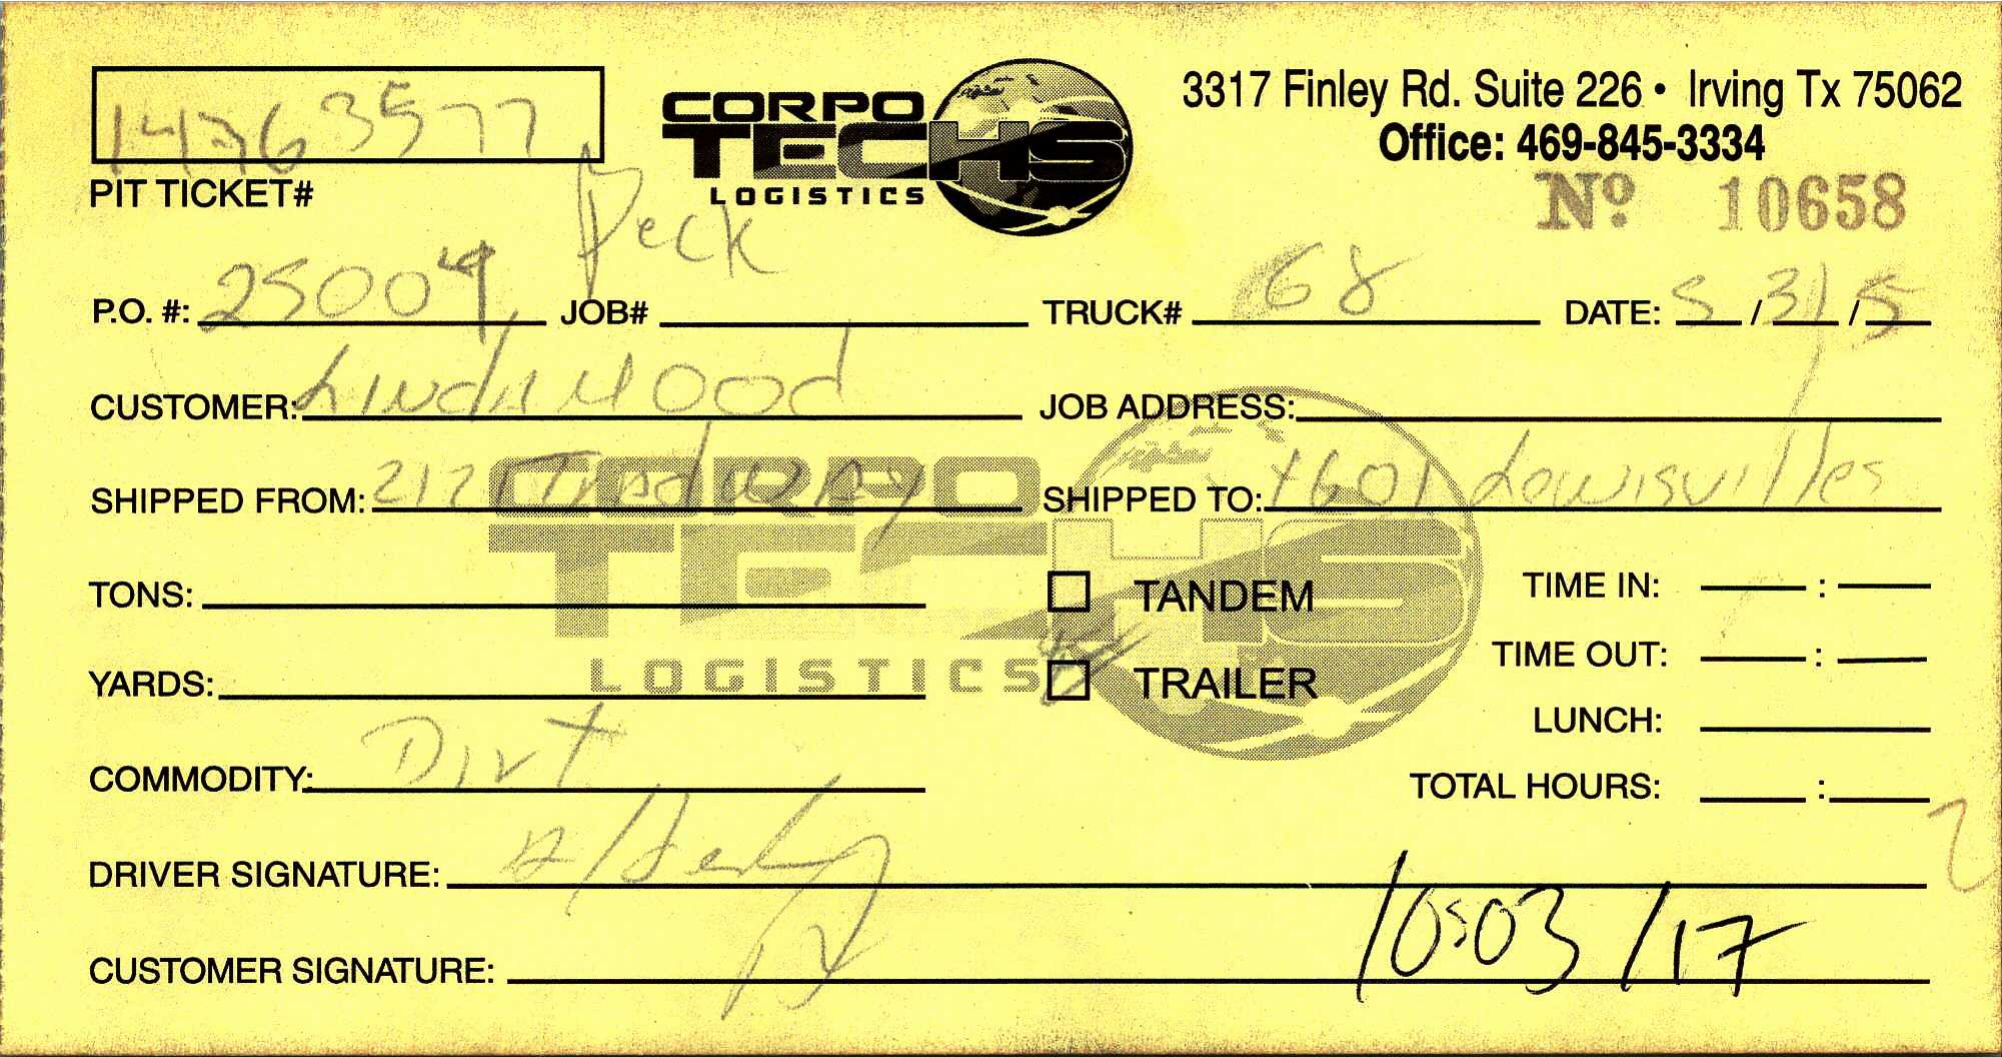 14763577
PIT TICKET#
CORPO
TECHS
LOGISTICS
3317 Finley Rd. Suite 226 • Irving Tx 75062
Office: 469-845-3334
Nº 10658
Peck
P.O. #: 25004 JOB# TRUCK# 68 DATE: 5/31/5
CUSTOMER: JOB ADDRESS:
SHIPPED FROM: 2121 SHIPPED TO: 1601 Lowisvilles
CORPO
TECHS
LOGISTICS
TONS: TANDEM TIME IN: :
YARDS: TRAILER TIME OUT: :
LUNCH:
COMMODITY: Dirt TOTAL HOURS: :
DRIVER SIGNATURE:
CUSTOMER SIGNATURE: /17